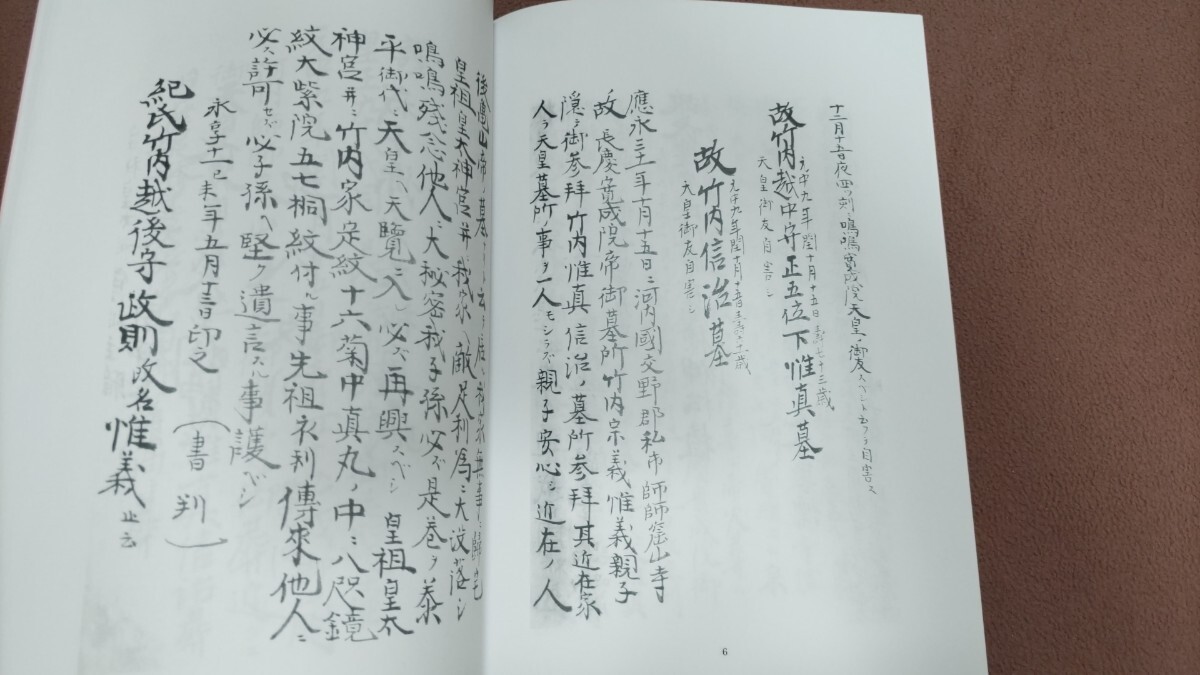 十二月十五日夜四ノ刻ニ鳴鳴寛成院天皇ノ御友スベシト云フテ自害ス
故竹内越中守正五位下惟真墓
元中九年閏十月十五日 寿七十三歳
天皇御友自害シ
故竹内信治墓
天皇御友自害シ
應永三十一年十月十五日ニ河内國交野郡私市師師窟山寺
故長慶寛成院帝御墓所竹内宗義惟義親子
隠ニ御参拜竹内惟真信治ノ墓所参拜其近在家
人ヲ天皇墓所ノ事ヲ一人モシラズ親子安心シ近在ノ人
皇祖皇太神宮并ニ我家ノ敵足利為ニ大没落シ
鳴鳴残念他人ニ大秘密我子孫必ズ是巻ヲ泰
平御代ニ天皇ヘ天覧ニ入ヘ必ズ再興スベシ 皇祖皇太
神宮并ニ竹内家定紋十六菊中真丸ノ中ニ八咫鏡
紋大紫院五七桐紋付ル事先祖衣利傳來他人ニ
必ズ許可セズ必子孫ヘ堅ク遺言スル事護ベシ
永享十一己未年五月十三日印之 (書判)
紀氏竹内越後守政則改名惟義 止云
6